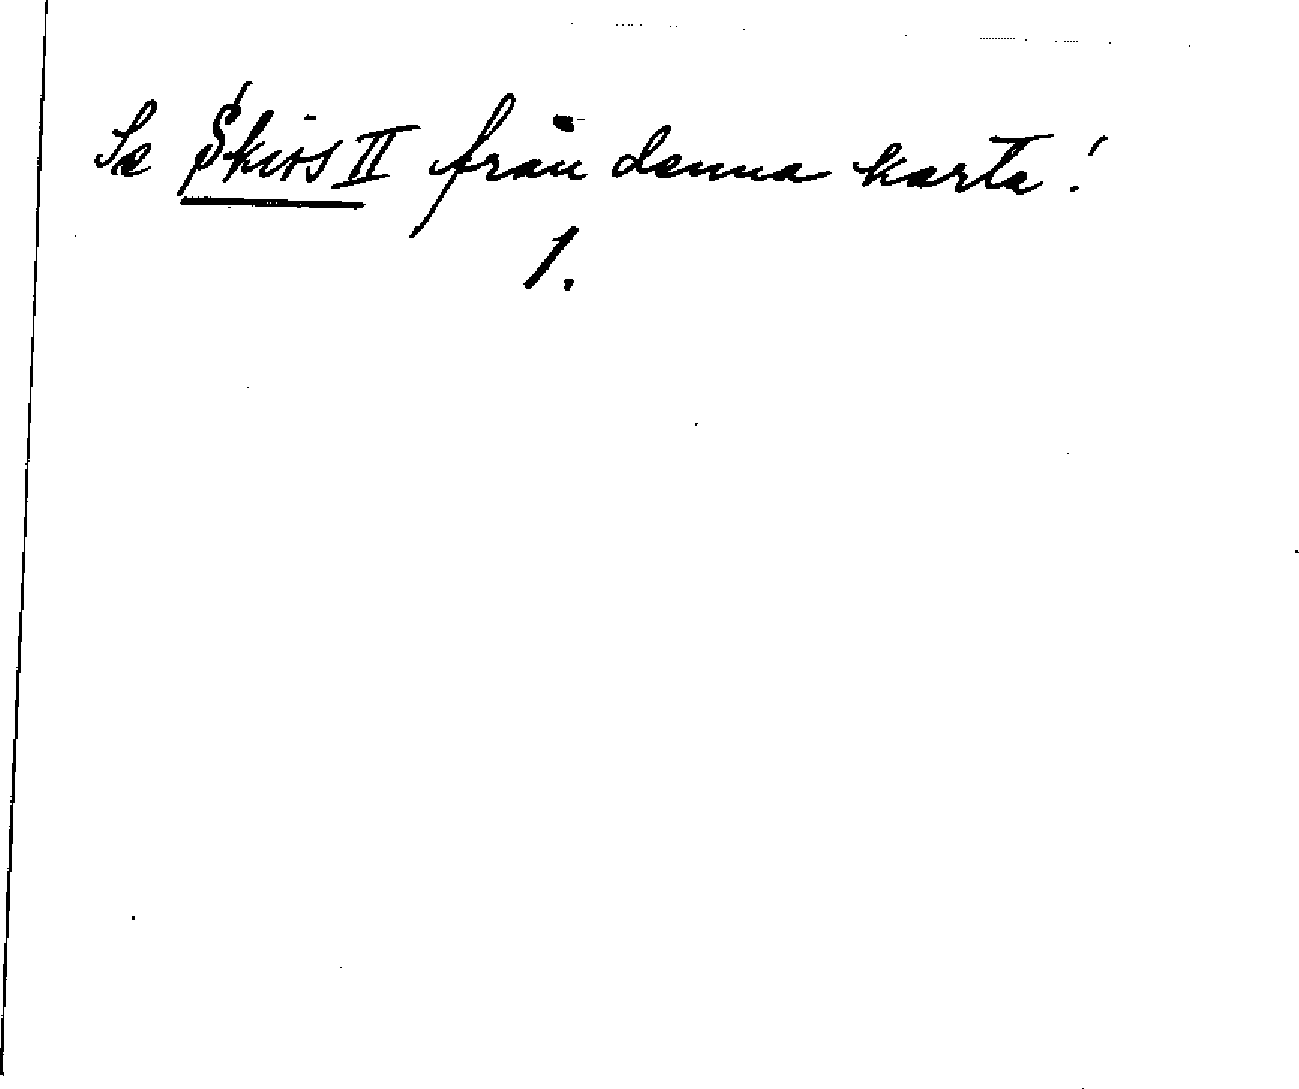 Se Skirs II från denna karta!
1.